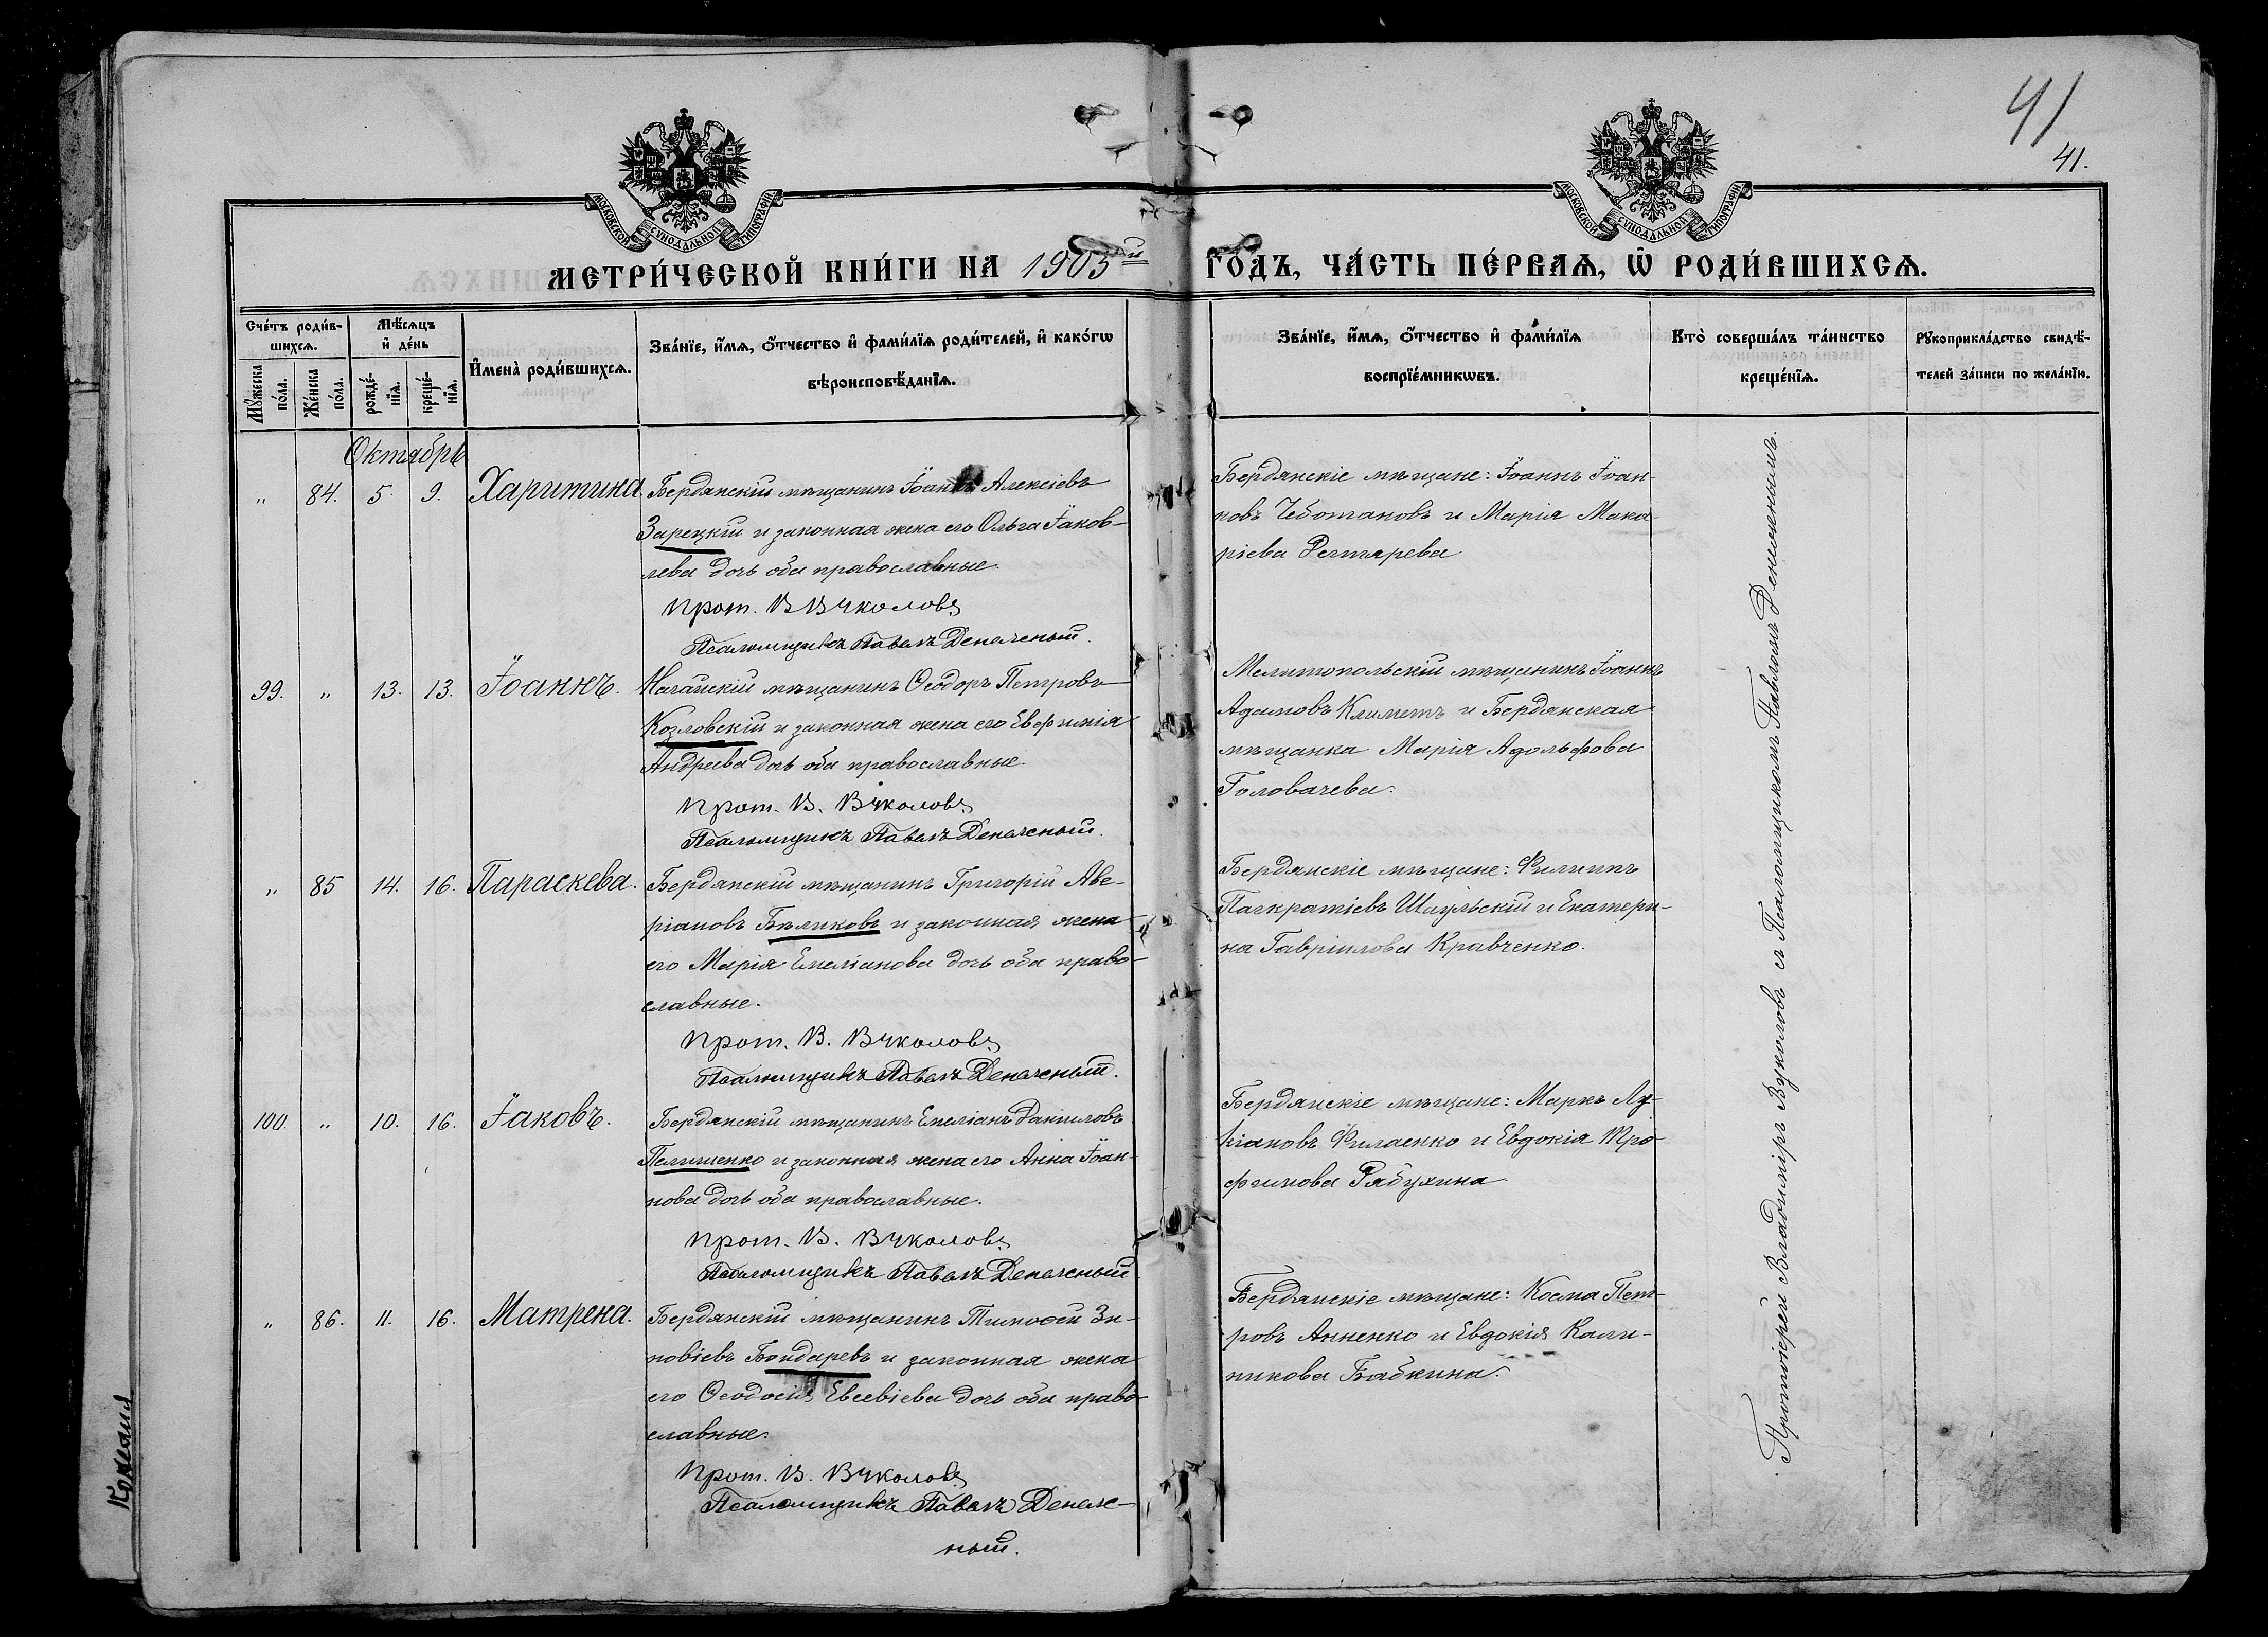 41
41.
МОСКОВСКОЙ СУНОДАЛЬНОЙ ТИПОГРАФІИ
МОСКОВСКОЙ СУНОДАЛЬНОЙ ТИПОГРАФІИ
МЕТРИ́ЧЕСКОЙ КНИ́ГИ НА 1903й ГО́ДЪ, ЧА́СТЬ ПЕ́РВАѦ, Ѡ҆ РОДИ́ВШИХСѦ.
Сче́тъ роди́в-
шихсѧ.
Мꙋ́жеска
по́ла.
Же́нска
по́ла.
Мѣ́сѧцъ
и҆ де́нь
рожде́-
нїѧ.
креще́-
нїѧ.
И҆мена̀ роди́вшихсѧ.
Зва́нїе, и҆́мѧ, ѻ҆́тчество и҆ фами́лїѧ роди́телей, и҆ како́гѡ
вѣроисповѣ́данїѧ.
Зва́нїе, и҆́мѧ, ѻ҆́тчество и҆ фами́лїѧ
воспрїе́мникѡвъ.
Кто̀ соверша́лъ та́инство
креще́нїѧ.
Рꙋкоприкла́дство свидѣ́-
телей за́писи по жела́нїю.
Октябрь
„ 84. 5. 9. Харитина. Бердянскій мѣщанинъ Іоаннъ Алексіевъ
Зарецкій и законная жена его Ольга Іаков-
лева дочь оба православные.
Прот. В Вуколовъ
Псаломщикъ Павелъ Денеженый.
Бердянскіе мѣщане: Іоаннъ Іоан-
новъ Чеботановъ и Марія Мака-
ріева Дегтярева
99. „ 13. 13. Іоаннъ. Ногайскій мѣщанинъ Ѳеодоръ Петровъ
Козловскій и законная жена его Евфимія
Андреева дочь оба православные.
Прот. В. Вуколовъ
Псаломщикъ Павелъ Денеженый.
Мелитопольскій мѣщанинъ Іоаннъ
Адамовъ Климетъ и Бердянская
мѣщанка Марія Адольфова
Головачева.
„ 85 14. 16. Параскева. Бердянскій мѣщанинъ Григорій Аве-
ріановъ Бѣликовъ и законная жена
его Марія Емеліанова дочь оба право-
славные.
Прот. В. Вуколовъ
Псаломщикъ Павелъ Денеженый.
Бердянскіе мѣщане: Филиппъ
Панкратіевъ Шаульскій и Екатери-
на Гавріилова Кравченко.
100. „ 10. 16. Іаковъ. Бердянскій мѣщанинъ Емеліанъ Даніиловъ
Пелишенко и законная жена его Анна Іоан-
нова дочь оба православные.
Прот. В. Вуколовъ
Псаломщикъ Павелъ Денеженый
Бердянскіе мѣщане: Маркъ Лу-
кіановъ Филаенко и Евдокія Тро-
фимова Рябухина
„ 86. 11. 16. Матрена. Бердянскій мѣщанинъ Тимоѳей Зи-
новіевъ Бондаревъ и законная жена
его Ѳеодосія Евсевіева дочь оба право-
славные.
Прот. В. Вуколовъ
Псаломщикъ Павелъ Денеже-
ный.
Бердянскіе мѣщане: Косма Пет-
ровъ Анненко и Евдокія Кали-
никова Бабкина.
Протоіерей Владиміръ Вуколовъ съ Псаломщикомъ Павломъ Денеженымъ.